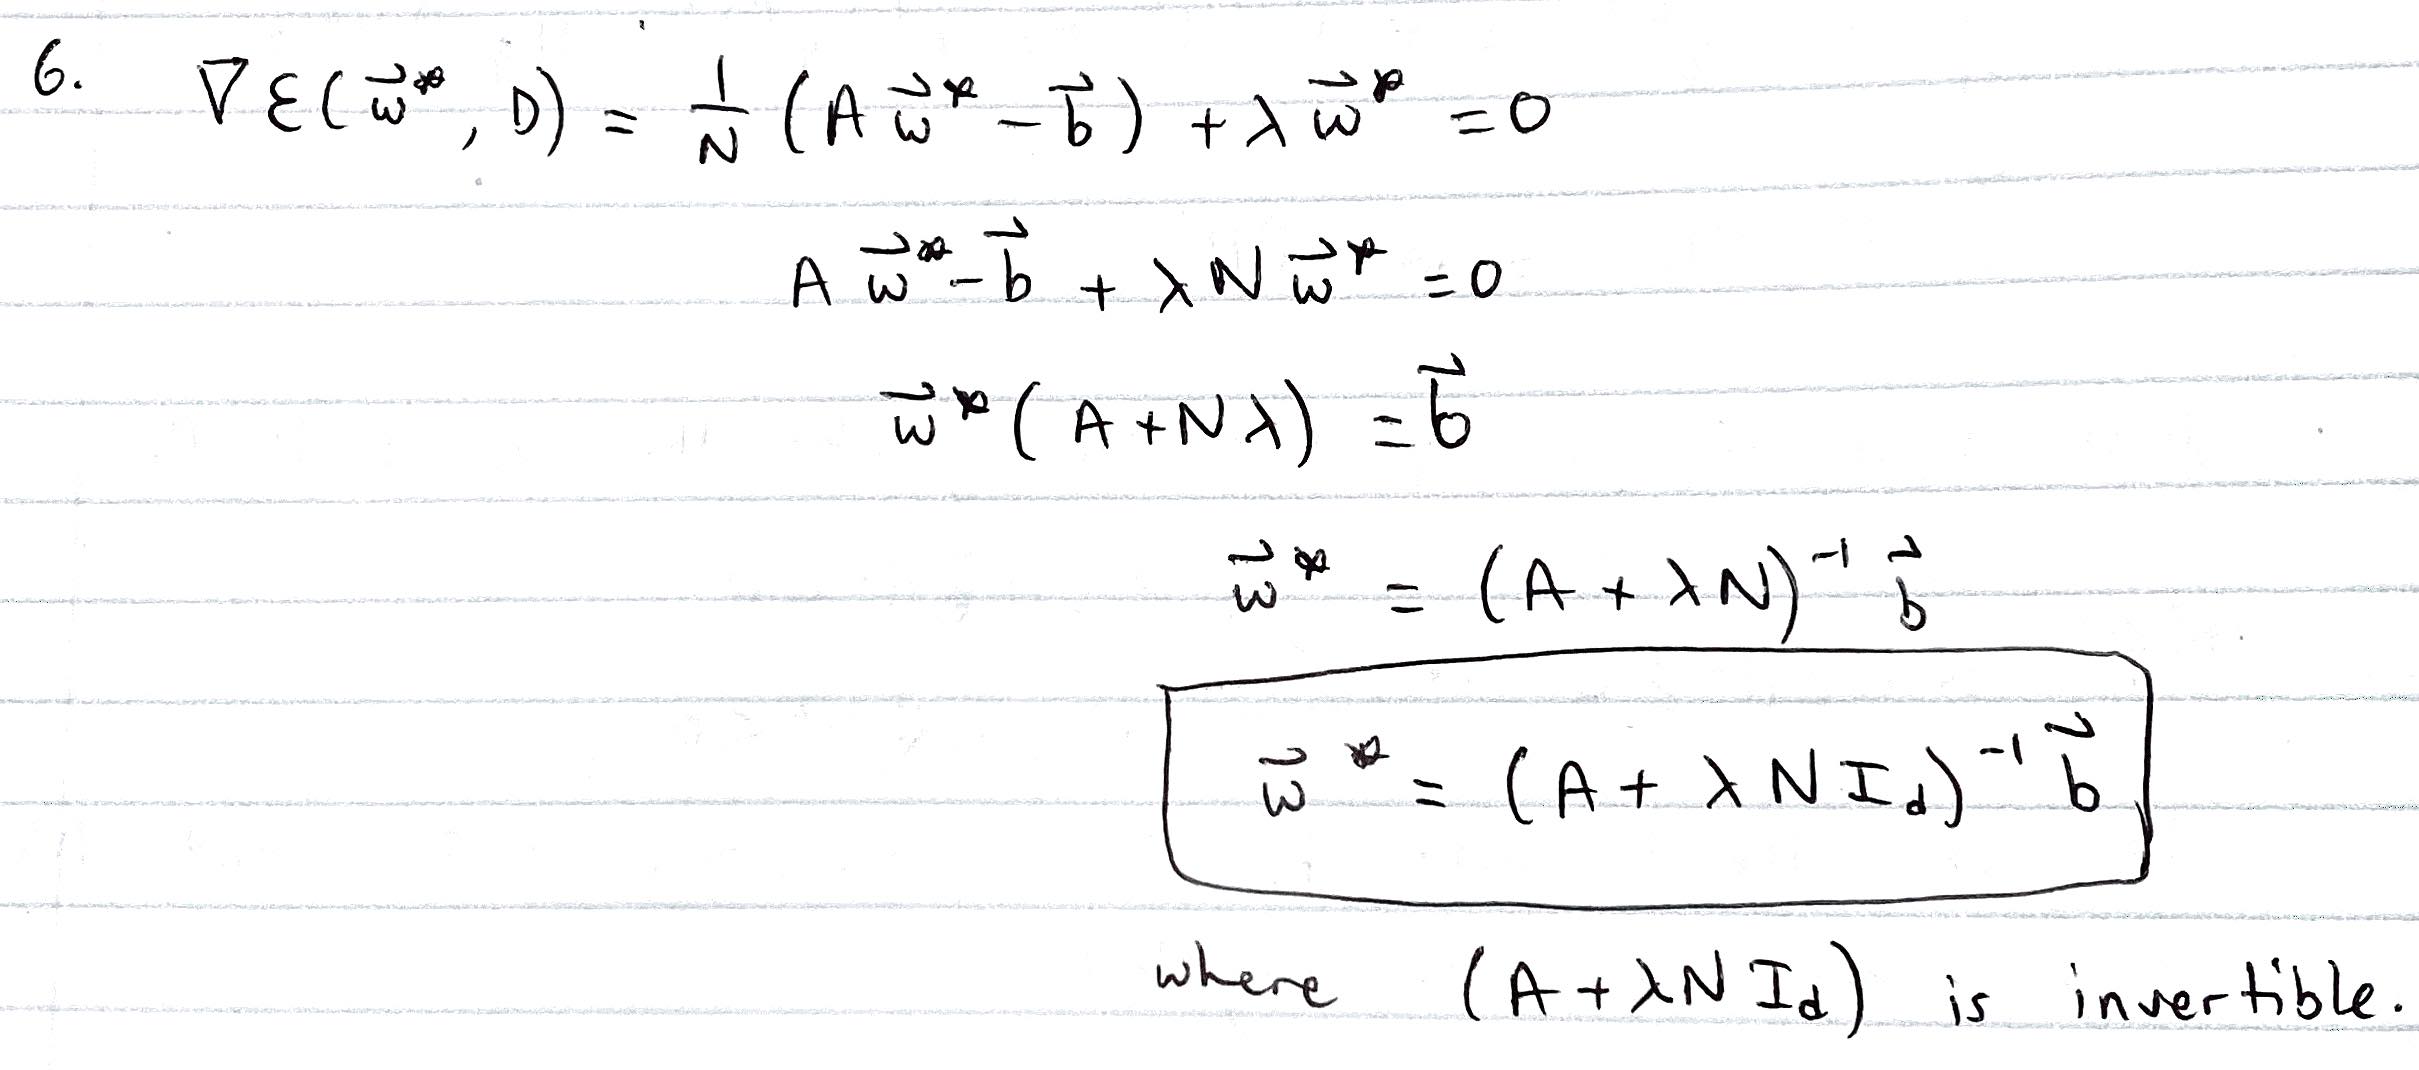 6. ∇ε(w⃗*, D) = 1/N (A w⃗* - b⃗) + λ w⃗* = 0
A w⃗* - b⃗ + λ N w⃗* = 0
w⃗* (A + N λ) = b⃗
w⃗* = (A + λ N)⁻¹ b⃗
w⃗* = (A + λ N I_d)⁻¹ b⃗
where (A + λ N I_d) is invertible.